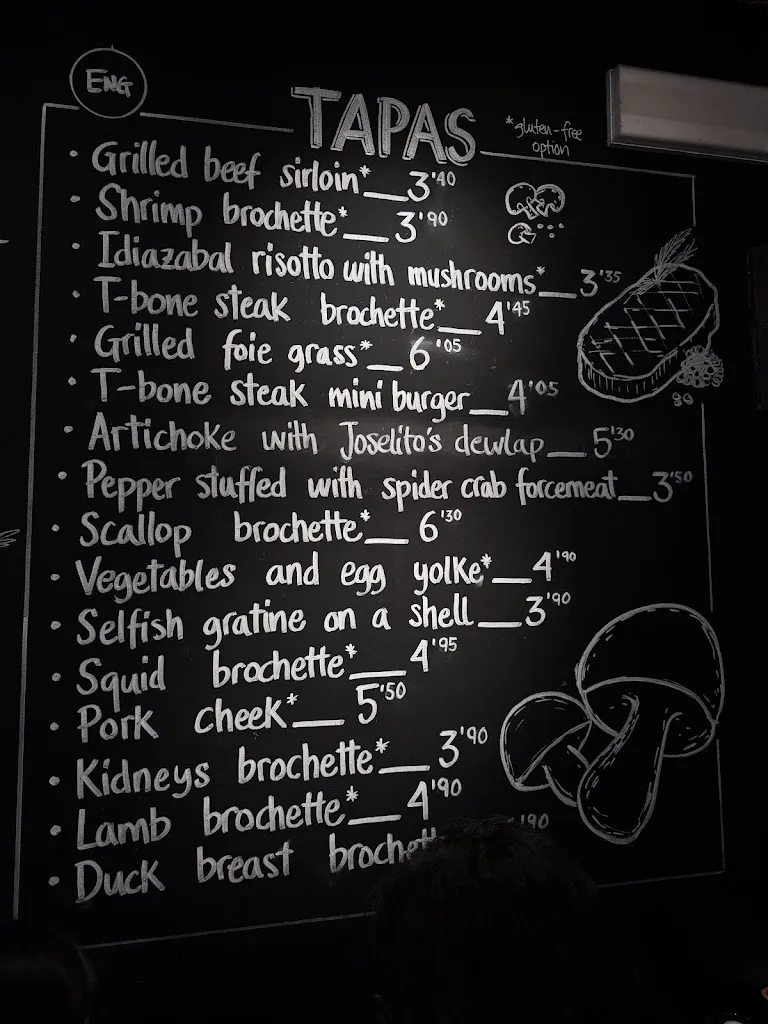 ENG
TAPAS
*gluten-free
option
· Grilled beef sirloin*__3'40
· Shrimp brochette*__3'90
· Idiazabal risotto with mushrooms*__3'35
· T-bone steak brochette*__4'45
· Grilled foie grass*__6'05
· T-bone steak mini burger__4'05
· Artichoke with Joselito's dewlap__5'30
· Pepper stuffed with spider crab forcemeat__3'50
· Scallop brochette*__6'30
· Vegetables and egg yolke*__4'90
· Selfish gratine on a shell__3'90
· Squid brochette*__4'95
· Pork cheek*__5'50
· Kidneys brochette*__3'90
· Lamb brochette*__4'90
· Duck breast '90